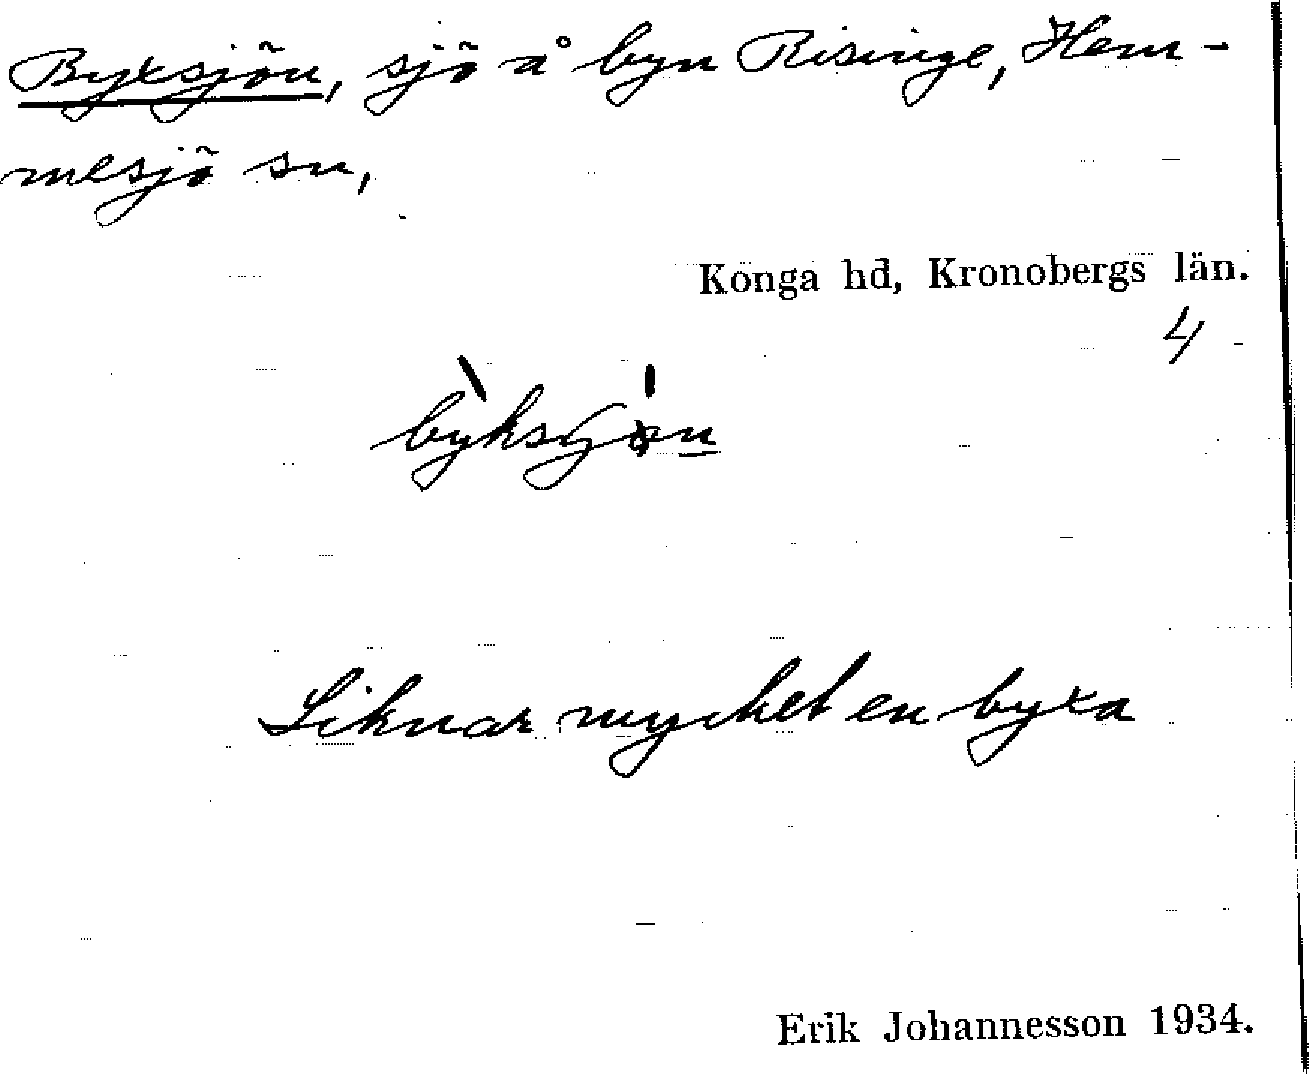 Byxsjön, sjö å byn Risinge, Hem-
mesjö sn,
Konga hd, Kronobergs län.
4
Liknar mycket en byxa
Erik Johannesson 1934.